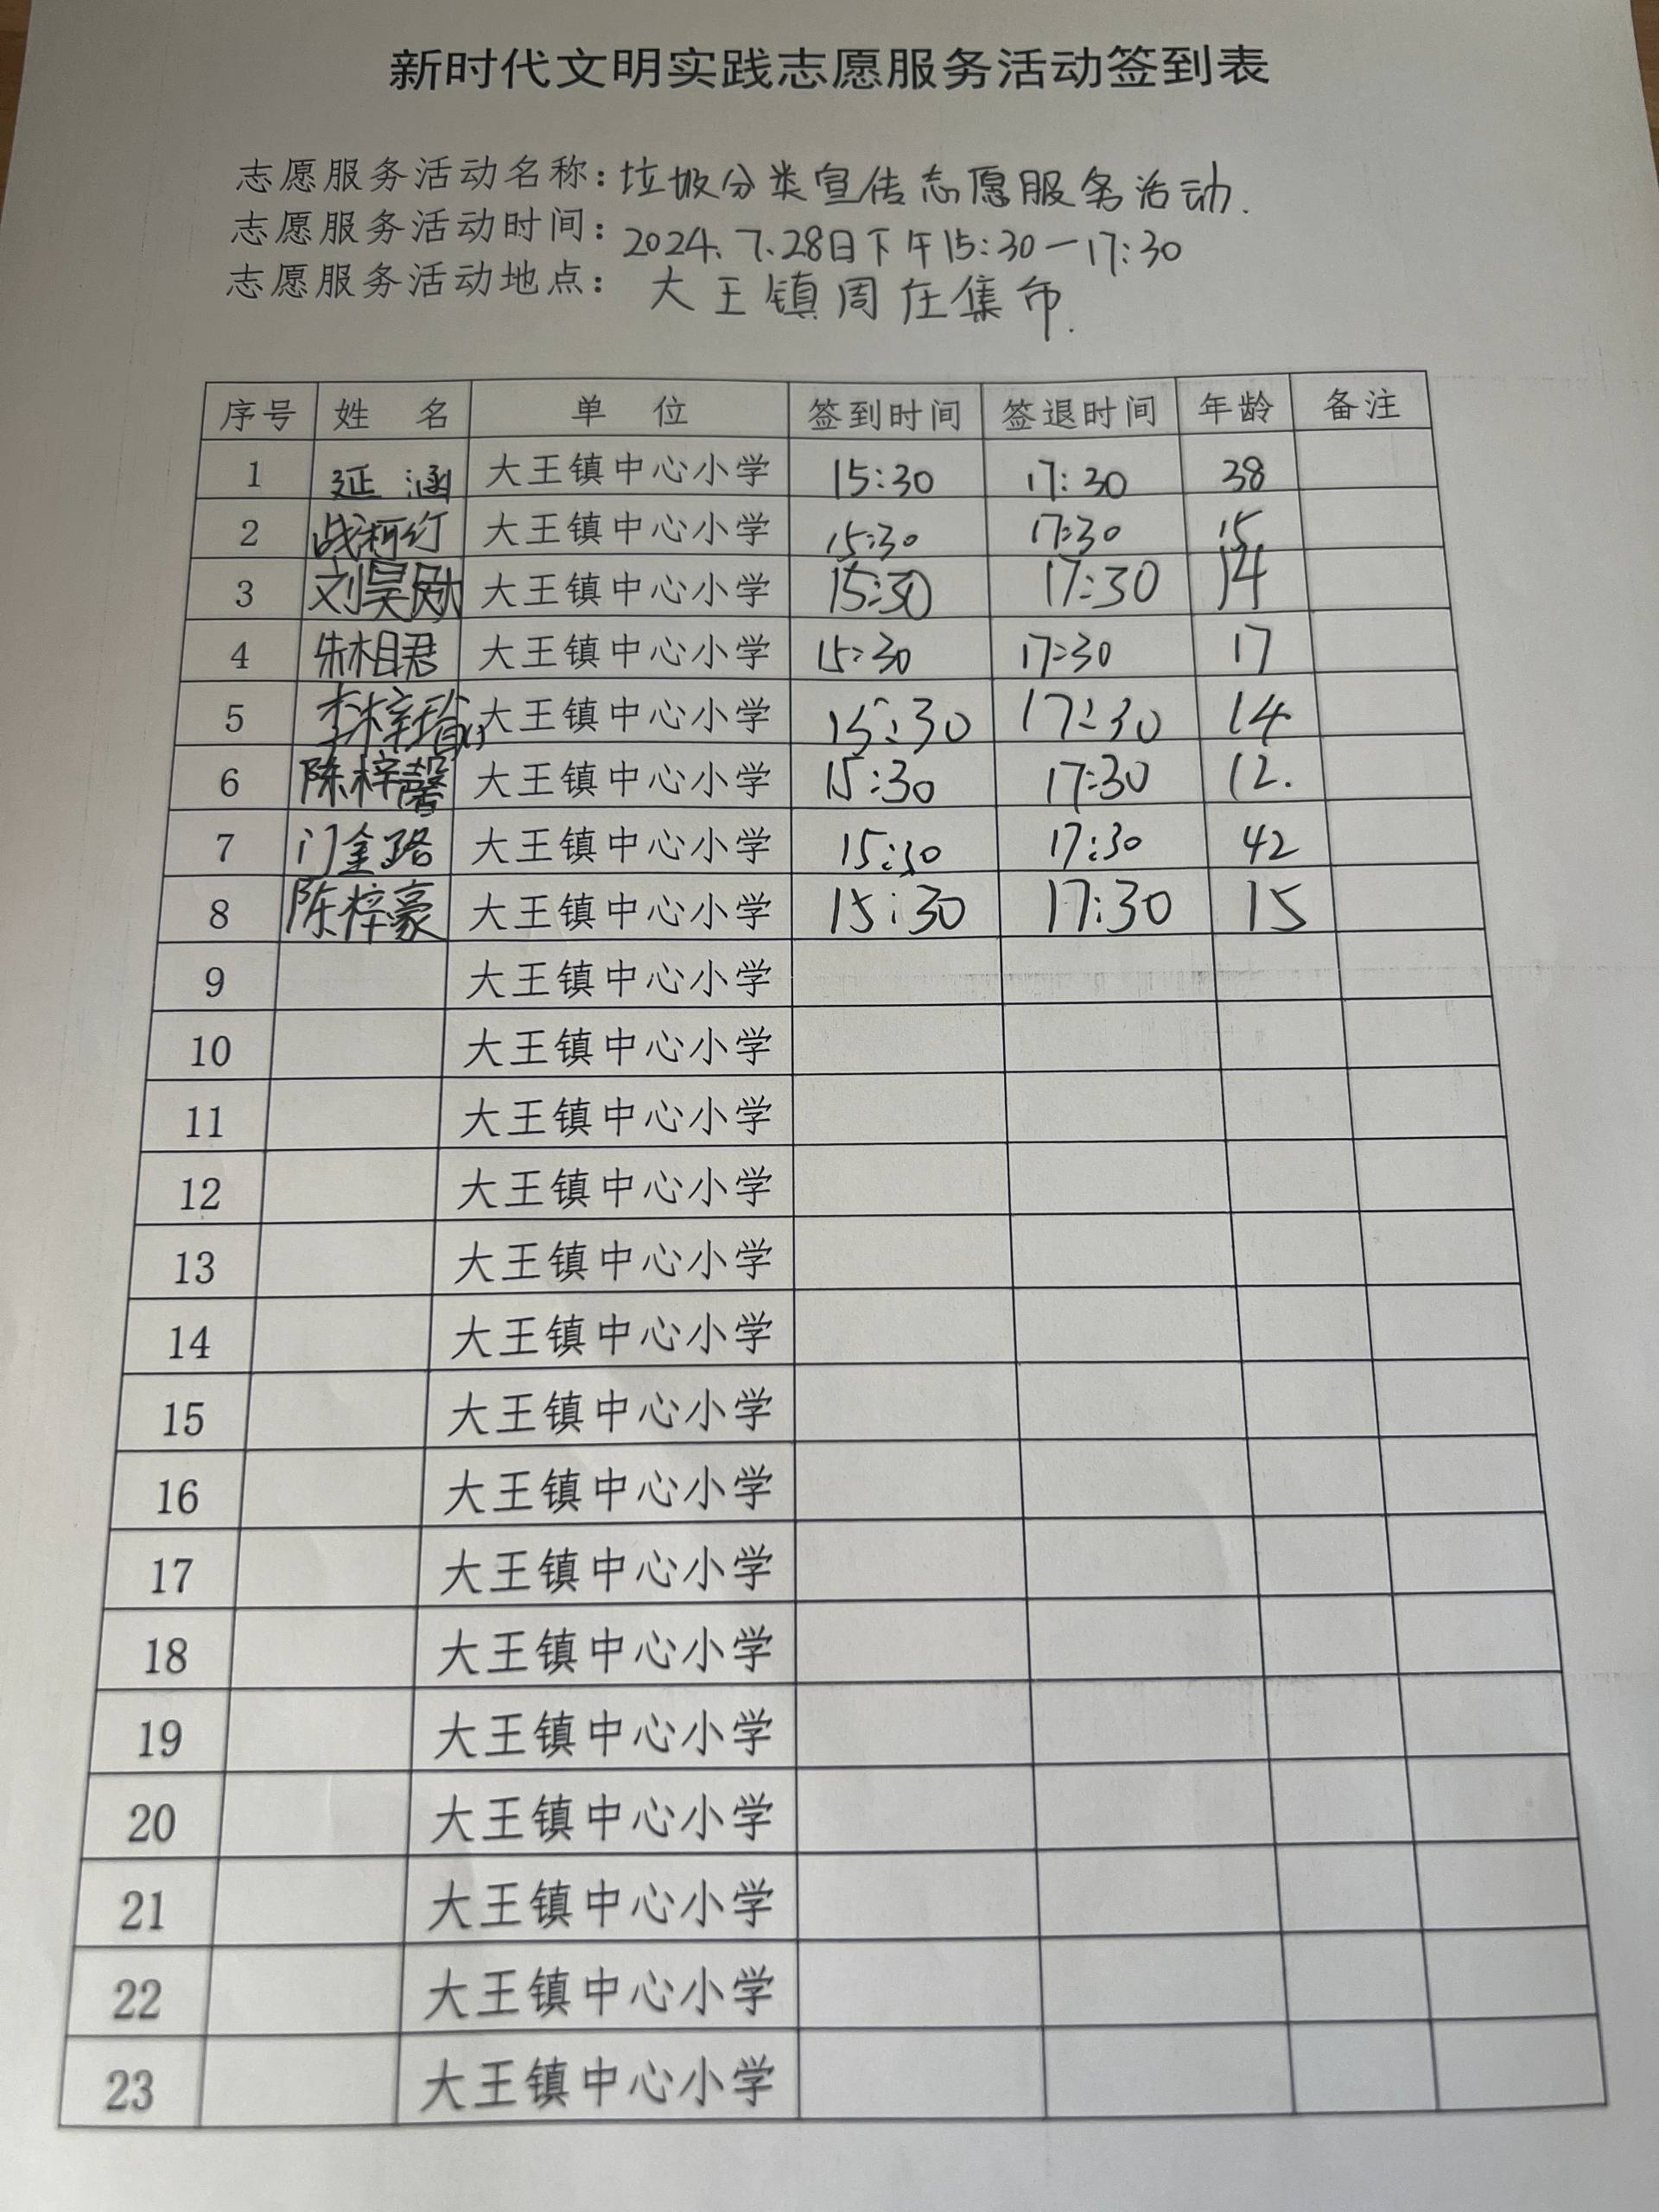 新时代文明实践志愿服务活动签到表
志愿服务活动名称：垃圾分类宣传志愿服务活动.
志愿服务活动时间：2024.7.28日下午15:30—17:30
志愿服务活动地点：大王镇周庄集市.
序号 姓 名 单 位 签到时间 签退时间 年龄 备注
1 延涵 大王镇中心小学 15:30 17:30 38
2 大王镇中心小学 15:30 17:30 15
3 大王镇中心小学 15:30 17:30 14
4 朱相君 大王镇中心小学 15:30 17:30 17
5 大王镇中心小学 15:30 17:30 14
6 陈梓馨 大王镇中心小学 15:30 17:30 12.
7 门金璐 大王镇中心小学 15:30 17:30 42
8 陈梓豪 大王镇中心小学 15:30 17:30 15
9 大王镇中心小学
10 大王镇中心小学
11 大王镇中心小学
12 大王镇中心小学
13 大王镇中心小学
14 大王镇中心小学
15 大王镇中心小学
16 大王镇中心小学
17 大王镇中心小学
18 大王镇中心小学
19 大王镇中心小学
20 大王镇中心小学
21 大王镇中心小学
22 大王镇中心小学
23 大王镇中心小学